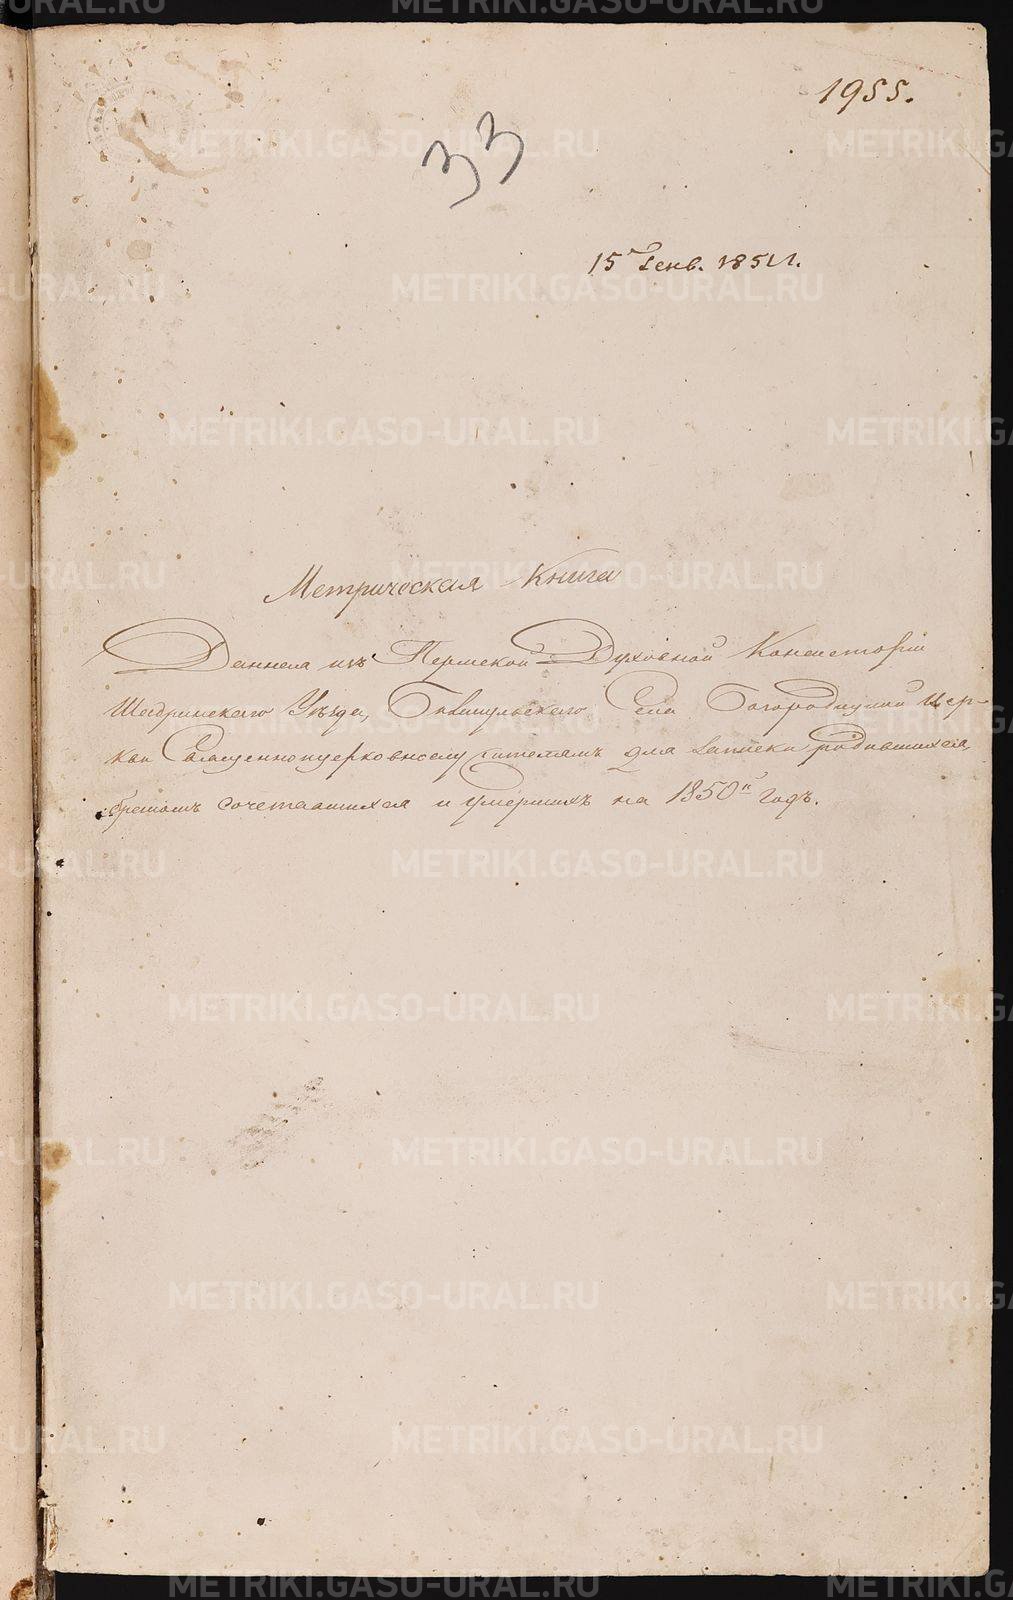 1955.
33
15 Генв. 1851 г.
Метрическая Книга
Данная изъ Пермской Духовной Консисторіи
Шадринскаго Уѣзда, Села Богородицкой Цер-
кви Священноцерковнослужителямъ для записки родившихся,
бракомъ сочетавшихся и умершихъ на 1850й годъ.
METRIKI.GASO-URAL.RU